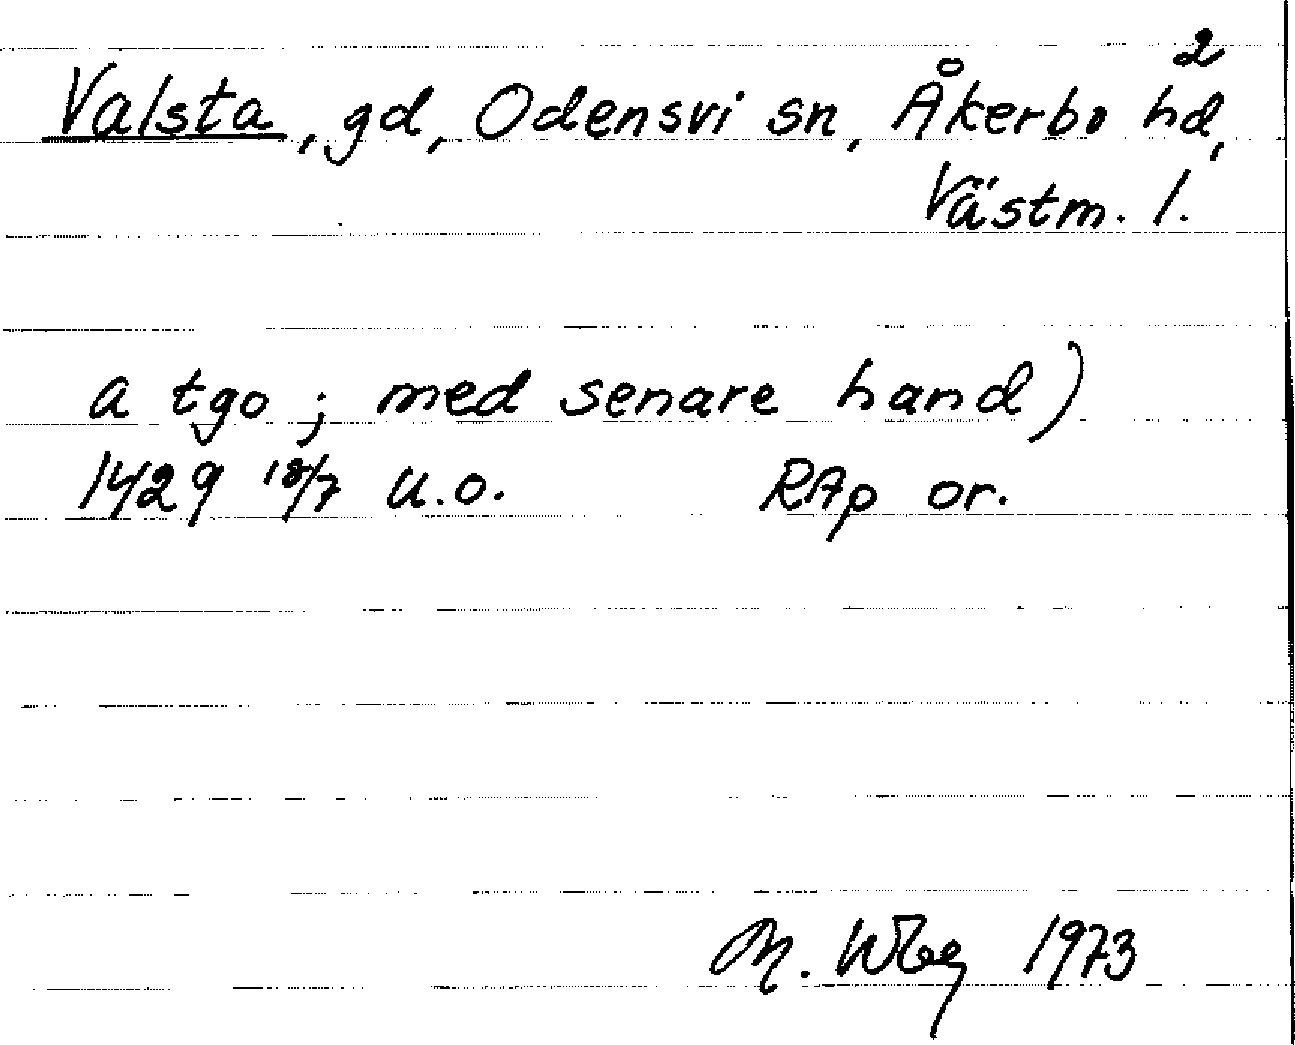 2
Valsta, gd, Odensvi sn, Åkerbo hd,
Västm. l.
a tgo ; med senare hand)
1429 18/7 u.o. RAp or.
M. Wbg 1973